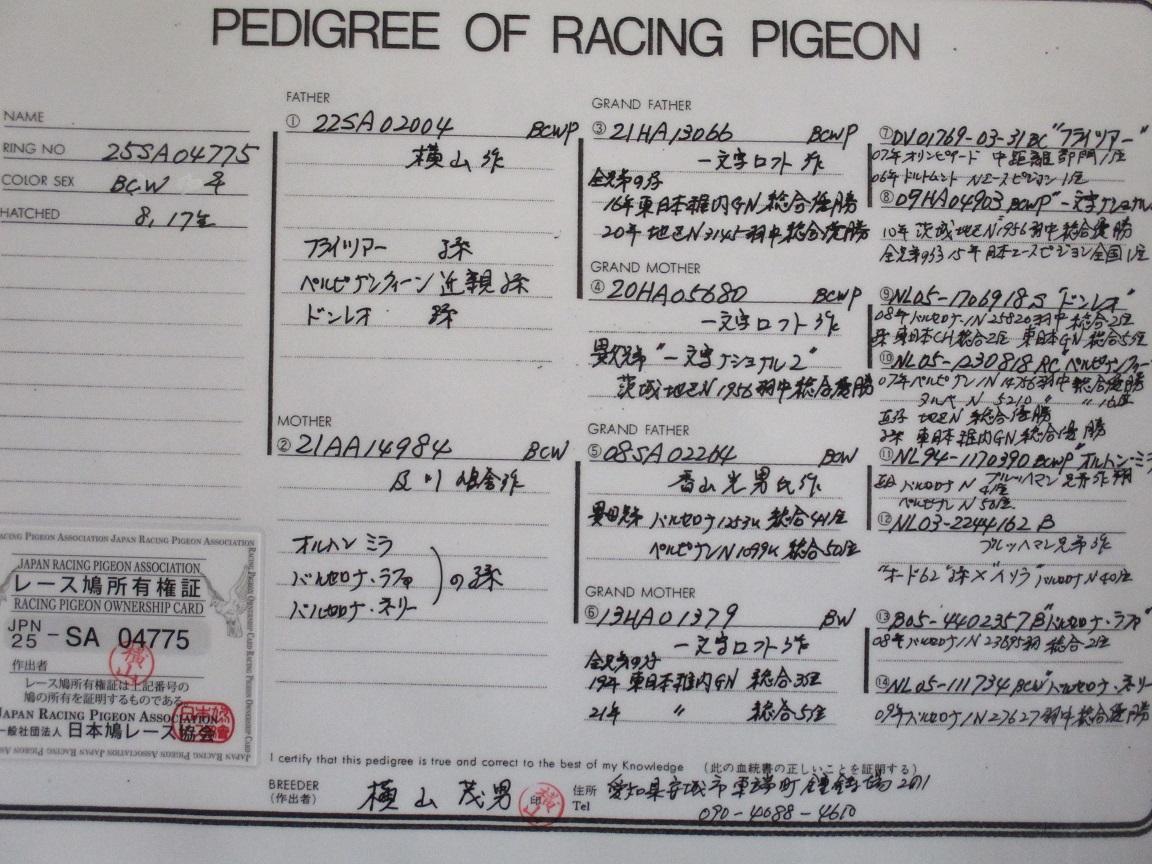 PEDIGREE OF RACING PIGEON
NAME
RING NO 25SA04775
COLOR SEX BCW ♀
HATCHED 8,17生
FATHER
① 22SA02004 BCWP
横山作
フライツアー 孫
ペルピナンクィーン 近親孫
ドンレオ 孫
MOTHER
② 21AA14984 BCW
及川鳩舎作
オルトン ミラ
バルセロナ・ラファ
バルセロナ・ネリー
の孫
GRAND FATHER
③ 21HA13066 BCWP
一文字ロフト作
全兄弟の仔
16年東日本稚内GN総合優勝
20年地区N3145羽中総合優勝
GRAND MOTHER
④ 20HA05680 BCWP
一文字ロフト作
異父兄弟"一文字ナショナル2"
茨城地区N1956羽中総合優勝
GRAND FATHER
⑤ 08SA02264 BCW
香山光男氏作
バルセロナ1253K 総合41位
ペルピナンN1099K 総合50位
GRAND MOTHER
⑥ 13HA01379 BW
一文字ロフト作
全兄弟の仔
19年東日本稚内GN総合3位
21年 〃 総合5位
⑦ DV01769-03-31 BC "フライツアー"
07年オリンピアード 中距離部門1位
06年ドルトムント Nエースピジョン1位
⑧ 09HA04903 BCWP "一文字ナショナル
10年茨城地区N1956羽中総合優勝
全兄弟の 15年日本エースピジョン全国1位
⑨ NL05-1706918 S "ドンレオ"
08年バルセロナIN25820羽中総合2位
孫 東日本CH総合2位 東日本GN総合5位
⑩ NL05-1230818 RC "ペルピナンクィー
07年ペルピナンIN14756羽中総合優勝
タルベN 5210 〃 〃 16位
直仔 地区N 総合優勝
孫 東日本稚内GN総合優勝
⑪ NL94-1170390 BCWP "オルトン・ミラ
ブルッハマン兄弟作翔
バルセロナN 4位
ペルピナンN 50位
⑫ NL03-2244162 B
ブルッハマン兄弟作
バルセロナN40位
⑬ B05-4402357 B "バルセロナ・ラファ"
08年バルセロナIN23695羽 総合2位
⑭ NL05-111734 BCW "バルセロナ・ネリー
09年バルセロナIN27627羽中総合優勝
JAPAN RACING PIGEON ASSOCIATION
レース鳩所有権証
RACING PIGEON OWNERSHIP CARD
JPN 25 - SA 04775
作出者 横山
レース鳩所有権証は上記番号の
鳩の所有を証明するものである
JAPAN RACING PIGEON ASSOCIATION
一般社団法人 日本鳩レース協会
I certify that this pedigree is true and correct to the best of my Knowledge （此の血統書の正しいことを証明する）
BREEDER （作出者） 横山茂男 印 住所 Tel 愛知県安城市東端町鐘鋳場201
090-4088-4610